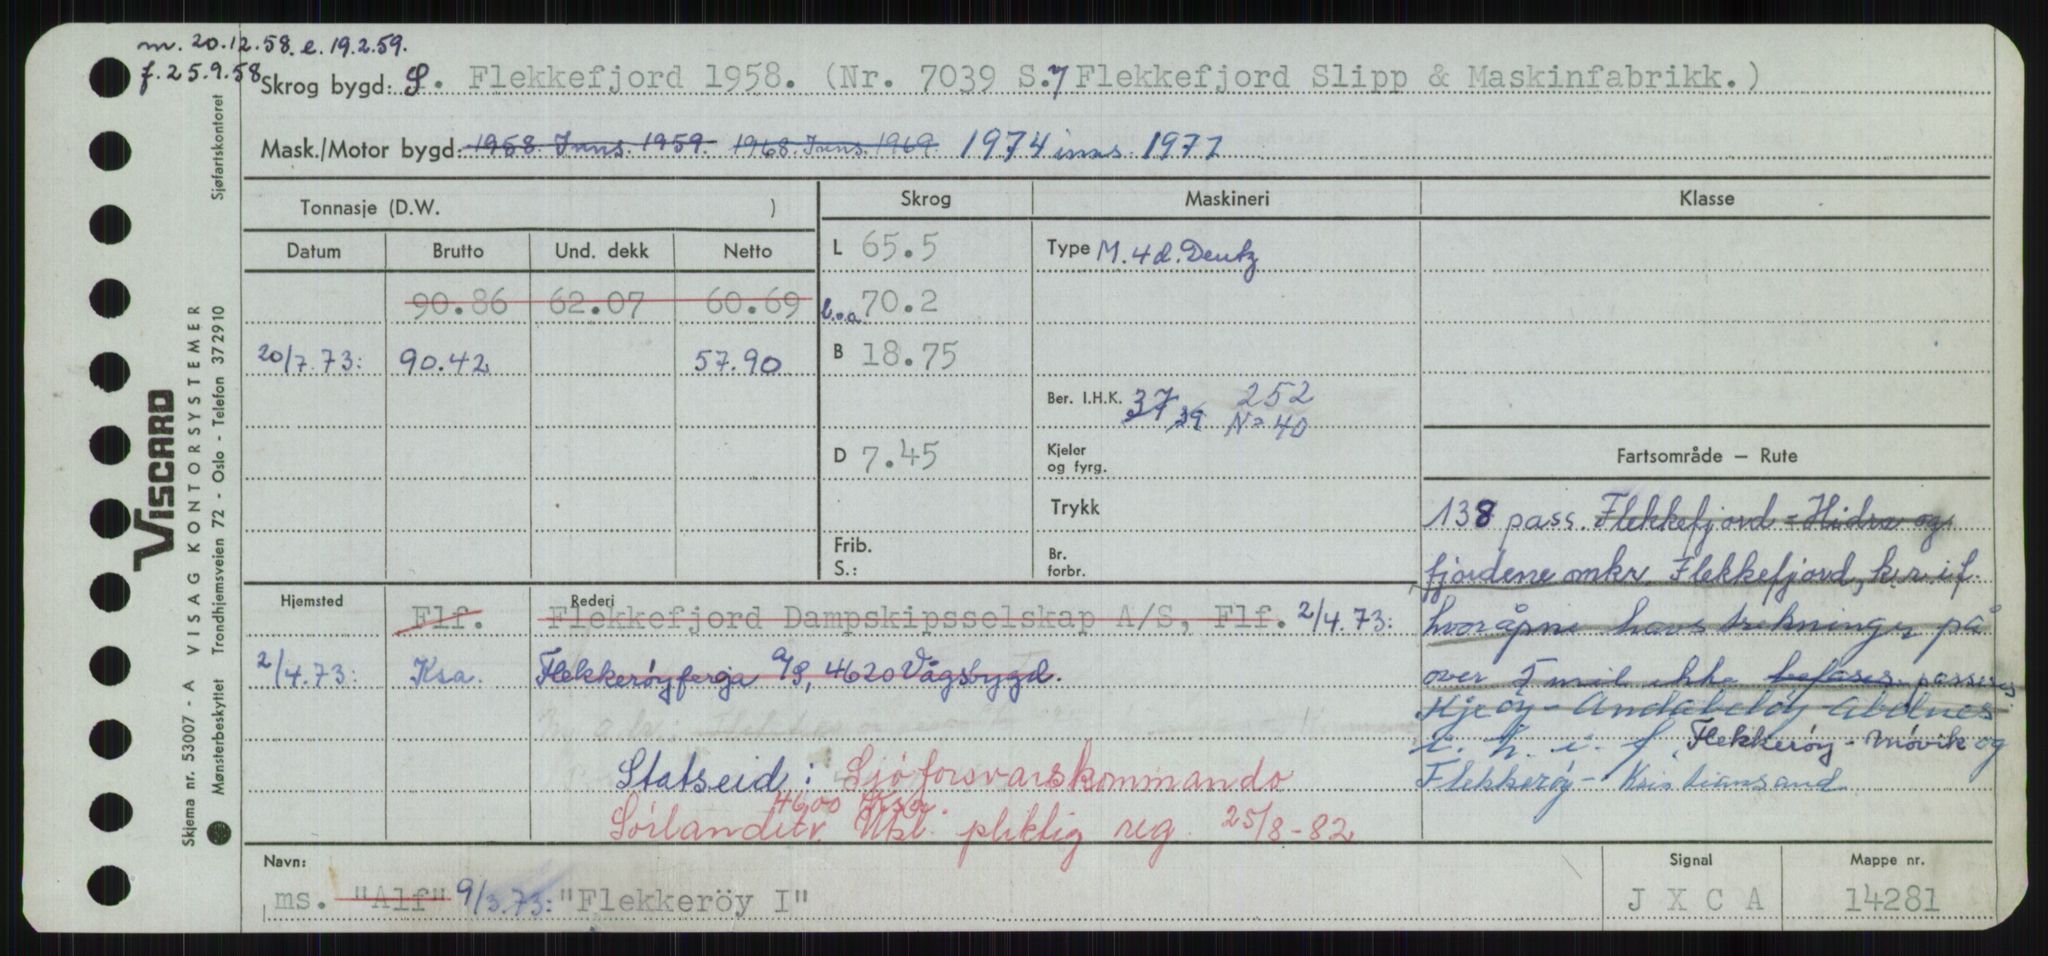 m. 20.12.58. e. 19.2.59.
f. 25.9.58
Skrog bygd: S. Flekkefjord 1958. (Nr. 7039 S.7 Flekkefjord Slipp & Maskinfabrikk.)
Mask./Motor bygd: 1958. Inns. 1959. 1968. Inns. 1969. 1974 inns. 1977
Tonnasje (D.W. )
Skrog
Maskineri
Klasse
Datum Brutto Und. dekk Netto
L 65.5
Type M. 4 d. Deutz
90.86 62.07 60.69
l.o.a. 70.2
20/7.73: 90.42 57.90
B 18.75
Ber. I.H.K. 37 39 252
N = 40
D 7.45
Kjeler
og fyrg.
Fartsområde — Rute
Trykk
138 pass. Flekkefjord - Hidra og
Frib.
S.:
Br.
forbr.
fjordene omkr. Flekkefjord, k.r. i.f.
Hjemsted
Rederi
Flf. Flekkefjord Dampskipsselskap A/S, Flf. 2/4.73:
hvor åpne havstrekninger på
2/4.73: Ksa. Flekkerøyferja A/S, 4620 Vågsbygd.
over 5 mil ikke befares passeres
Hjeøy - Andabeløy - Abelnes
Flekkerøy - Møvik og
Statseid: Sjøforsvarskommando
Flekkerøy - Kristiansand
4600 Krsa.
Sørlandet. Ukl. pliktig reg. 25/8-82
Navn:
ms. "Alf" 9/3.73: "Flekkeröy I"
Signal
J X C A
Mappe nr.
14281
VISCARD
VISAG KONTORSYSTEMER
Skjema nr. 53007 - A
Mønsterbeskyttet Trondhjemsveien 72 - Oslo - Telefon 372910
Sjøfartskontoret